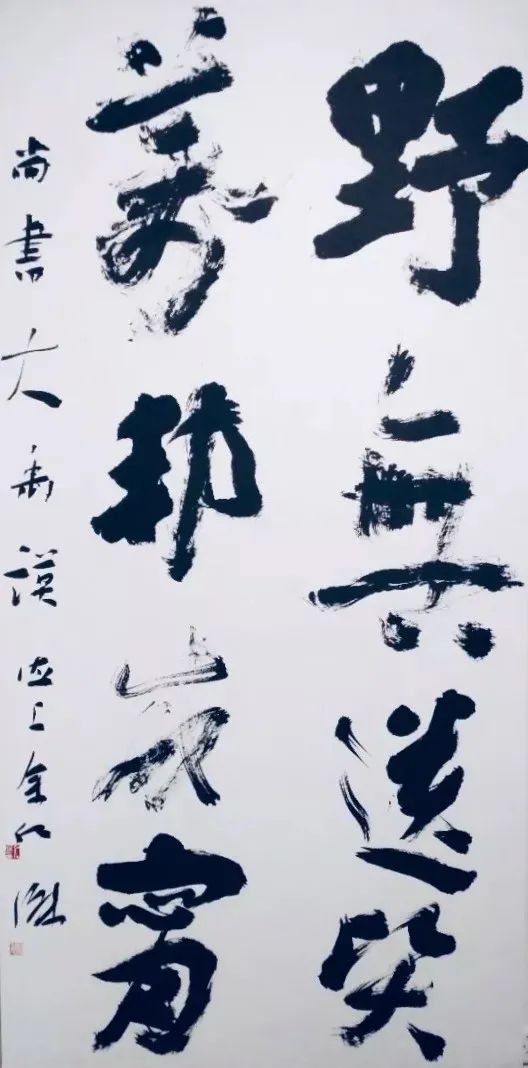 野無遺賢
萬邦咸寧
尚書大禹謨